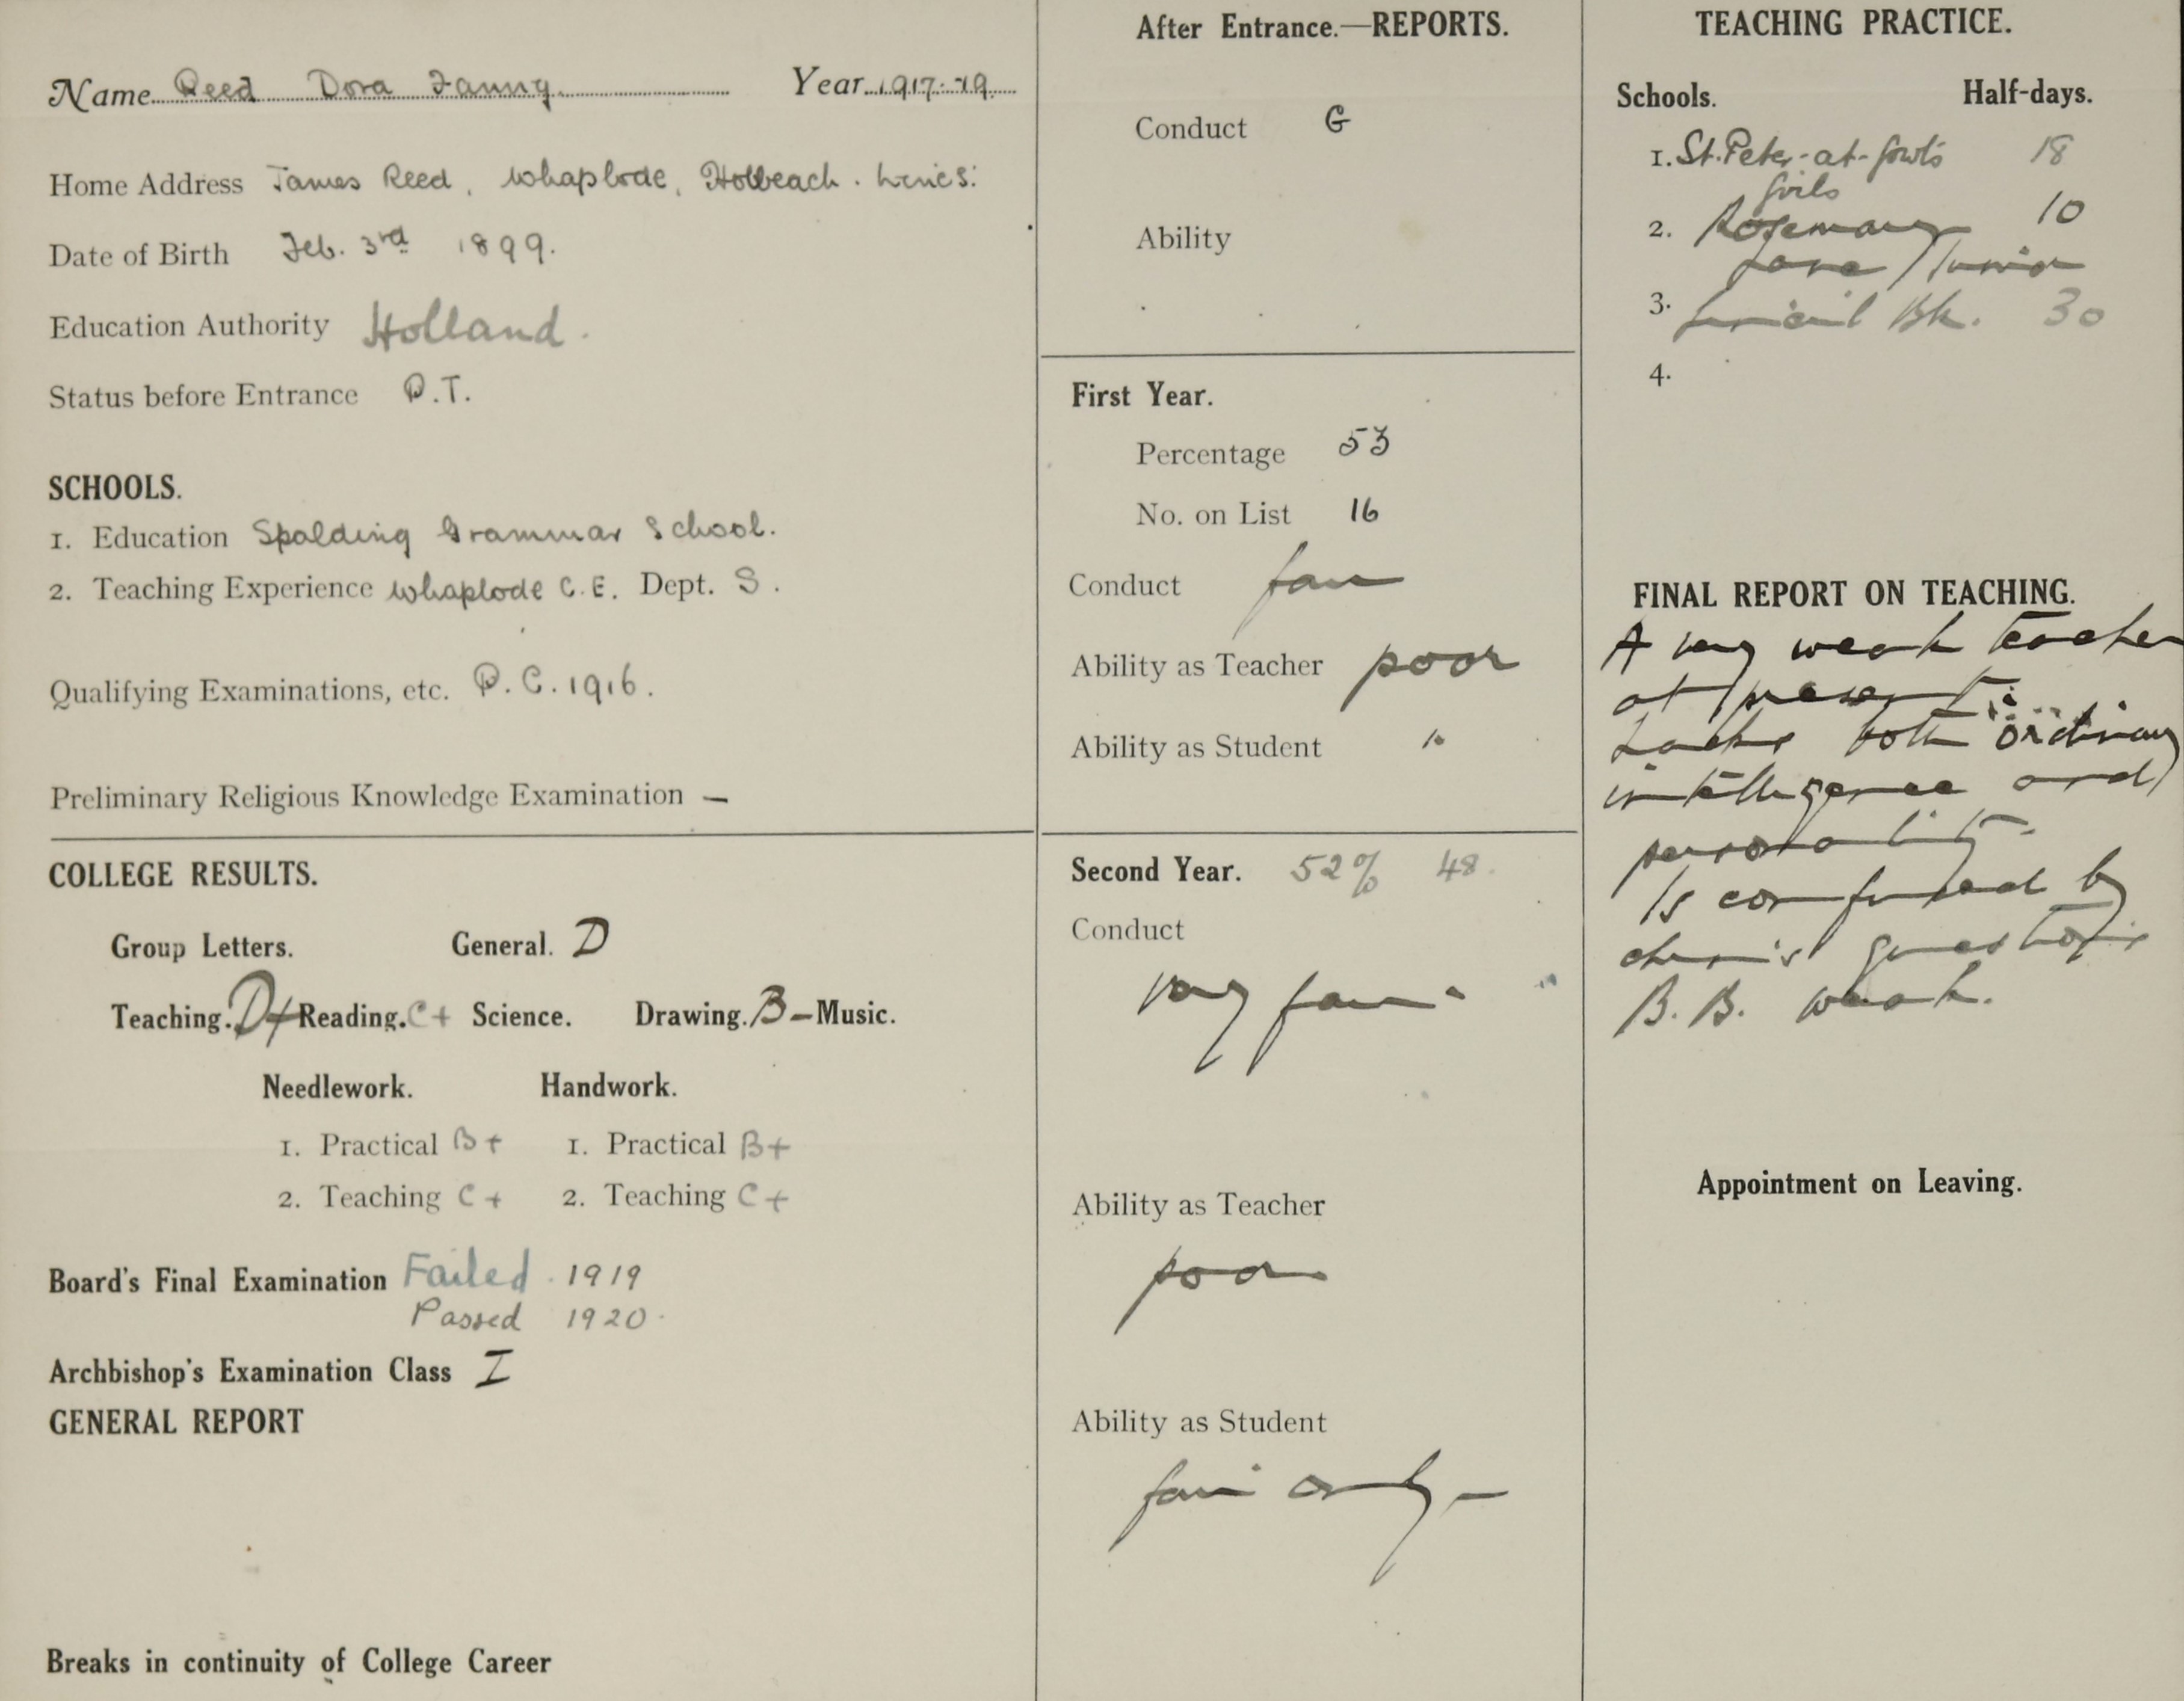 Name Reed Dora Fanny. Year 1917-19.
Home Address James Reed, Whaplode, Holbeach. Lincs:
Date of Birth Feb. 3rd 1899.
Education Authority Holland.
Status before Entrance P.T.
SCHOOLS.
1. Education Spalding Grammar School.
2. Teaching Experience Whaplode C.E. Dept. S.
Qualifying Examinations, etc. P.C. 1916.
Preliminary Religious Knowledge Examination —
COLLEGE RESULTS.
Group Letters. General. D
Teaching. D+ Reading. C+ Science. Drawing. B- Music.
Needlework. Handwork.
1. Practical B+ 1. Practical B+
2. Teaching C+ 2. Teaching C+
Board's Final Examination Failed. 1919
Passed 1920.
Archbishop's Examination Class I
GENERAL REPORT
Breaks in continuity of College Career
After Entrance.—REPORTS.
Conduct G
Ability
First Year.
Percentage 53
No. on List 16
Conduct fair
Ability as Teacher poor
Ability as Student "
Second Year. 52% 48.
Conduct
very fair
Ability as Teacher
poor
Ability as Student
fair only —
TEACHING PRACTICE.
Schools. Half-days.
1. St. Peter-at-Gowts 18
Girls
2. Rosemary 10
Lane Junior
3. 30
4.
FINAL REPORT ON TEACHING.
A very weak teacher
at present.
Lacks both ordinary
intelligence and
personality.
Is confused by
questions
B.B. weak.
Appointment on Leaving.